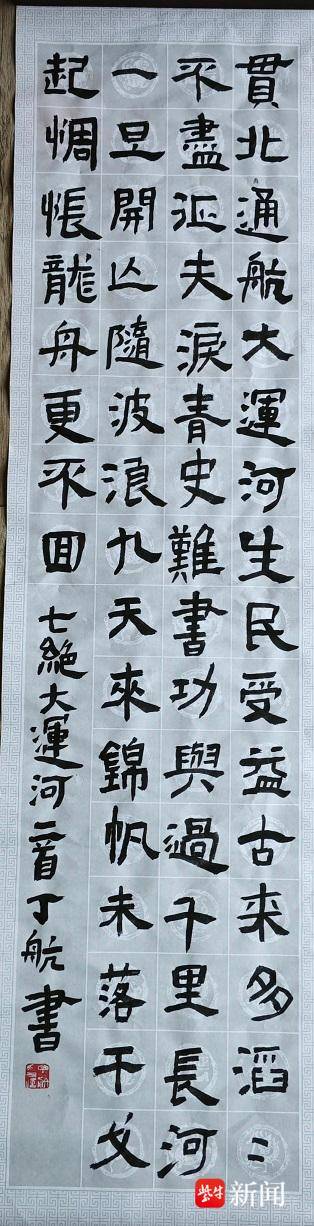 貫北通航大運河生民受益古来多滔〻
不盡征夫淚青史難書功與過千里長河
一旦開亾隨波浪九天來錦帆未落干戈
起惆悵龍舟更不囬七絕大運河二首丁航書
紫牛新闻